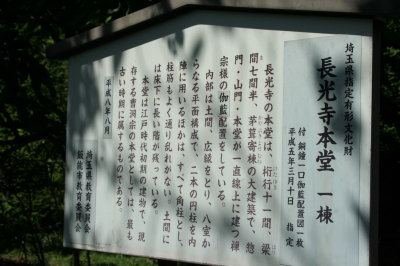 埼玉県指定有形文化財
長光寺本堂 一棟
付 銅鐘一口伽藍配置図一枚
平成五年三月十日 指定
長光寺の本堂は、桁行十一間、梁
間七間半、茅葺寄棟の大建築で、惣
門・山門・本堂が一直線上に建つ禅
宗様の伽藍配置をしている。
内部は土間、広縁をとり、八室か
らなる平面構成で、二本の円柱を内
陣に用いるほかは、すべて角柱とし、
柱筋もよく通り乱れがない。土間に
は床下に長い階が残っている。
本堂は江戸時代初期の建物で、現
存する曹洞宗の本堂としては、最も
古い時期に属するものである。
平成八年八月
埼玉県教育委員会
飯能市教育委員会